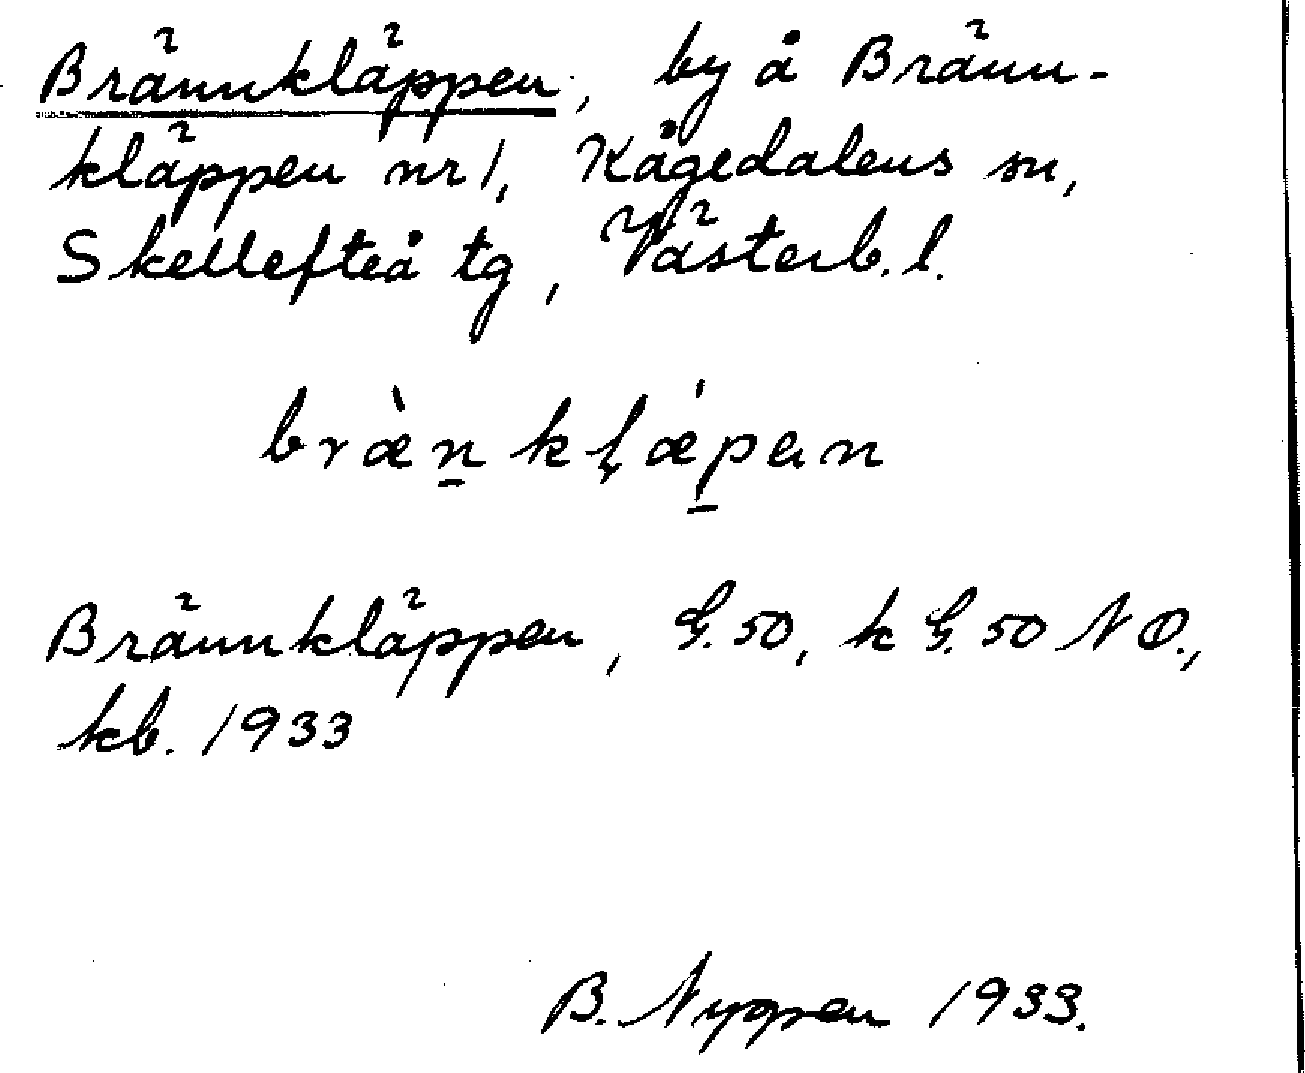 Brännkläppen, by å Bränn-
kläppen nr 1, Kågedalens sn,
Skellefteå tg, Västerb. l.
bræ̀n̠kļǽp̠an
Brännkläppen, G. 50, k G. 50 NO.,
kb. 1933
B. 1933.